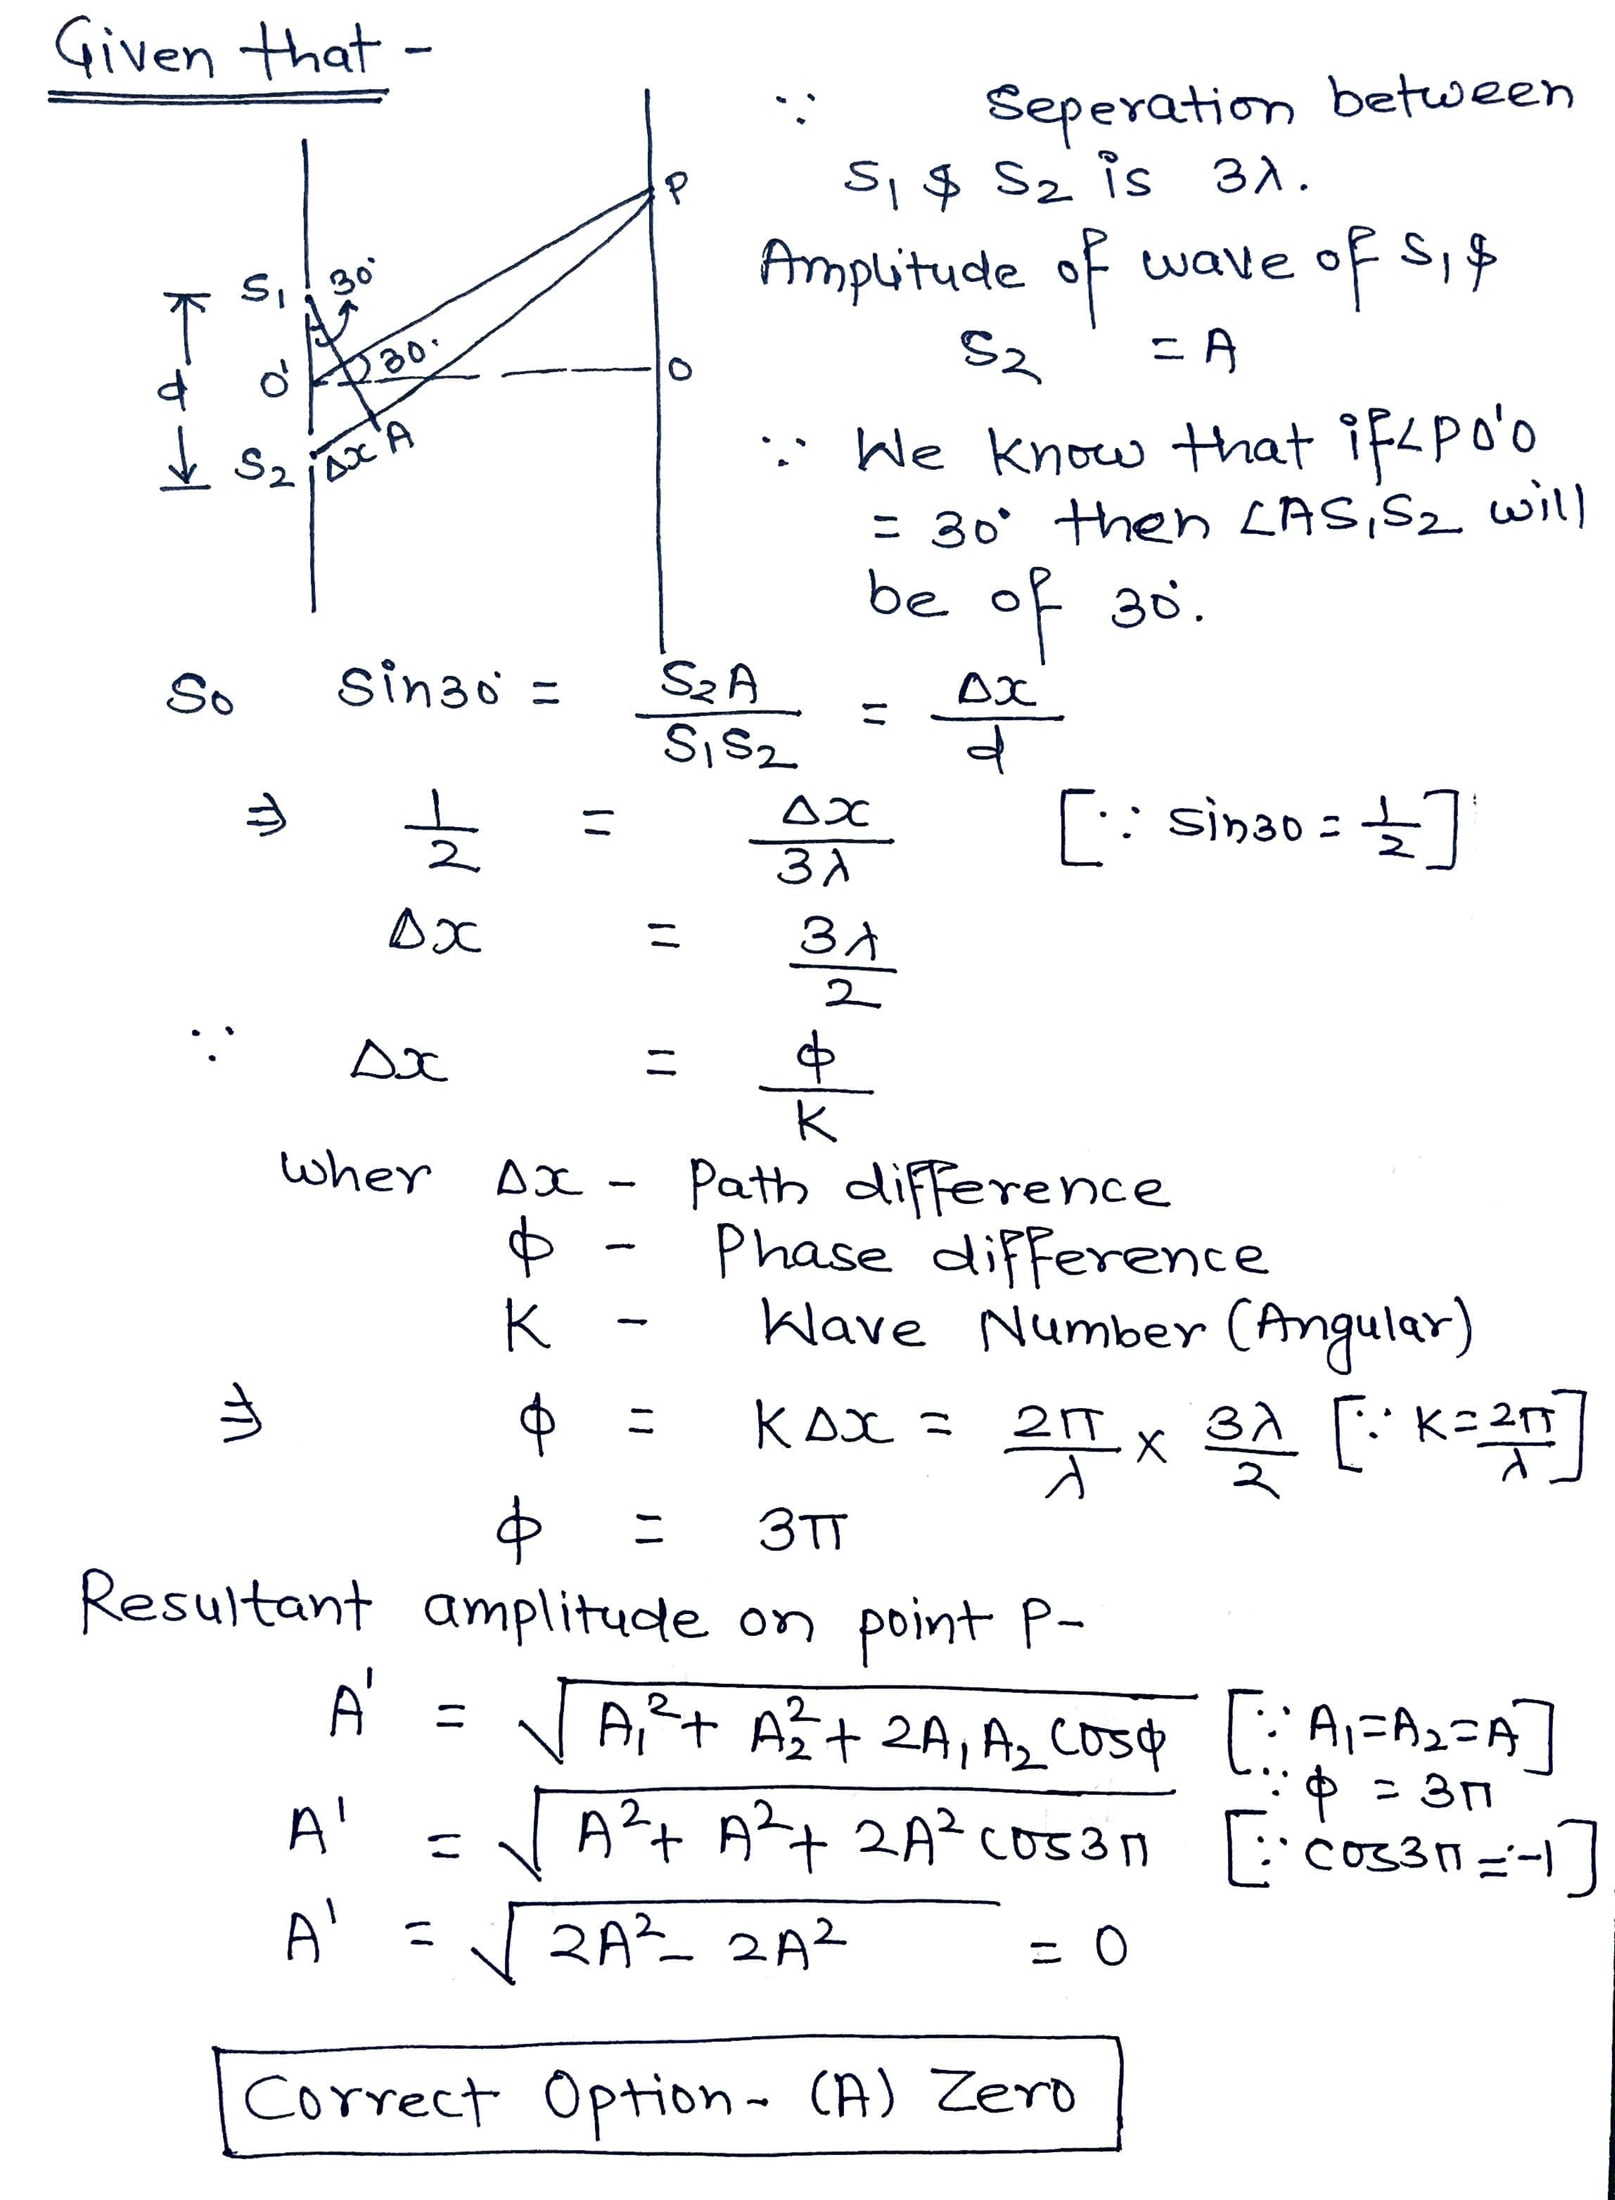 Given that -
∵ Seperation between
S₁ $ S₂ is 3λ.
Amplitude of wave of S₁ $
S₂ = A
P
S₁ 30°
d O' 30° O
S₂ Δx A
∵ We know that if ∠PO'O
= 30° then ∠AS₁S₂ will
be of 30°.
So Sin30° = S₂A/S₁S₂ = Δx/d
⇒ 1/2 = Δx/3λ [∵ Sin30 = 1/2]
Δx = 3λ/2
∵ Δx = ϕ/K
Wher Δx - Path difference
ϕ - Phase difference
K - Wave Number (Angular)
⇒ ϕ = KΔx = 2π/λ × 3λ/2 [∵ K = 2π/λ]
ϕ = 3π
Resultant amplitude on point P-
A' = √(A₁² + A₂² + 2A₁A₂ cosϕ) [∵ A₁=A₂=A]
∵ ϕ = 3π
A' = √(A² + A² + 2A² cos3π) [∵ cos3π = -1]
A' = √(2A² - 2A²) = 0
Correct Option - (A) Zero